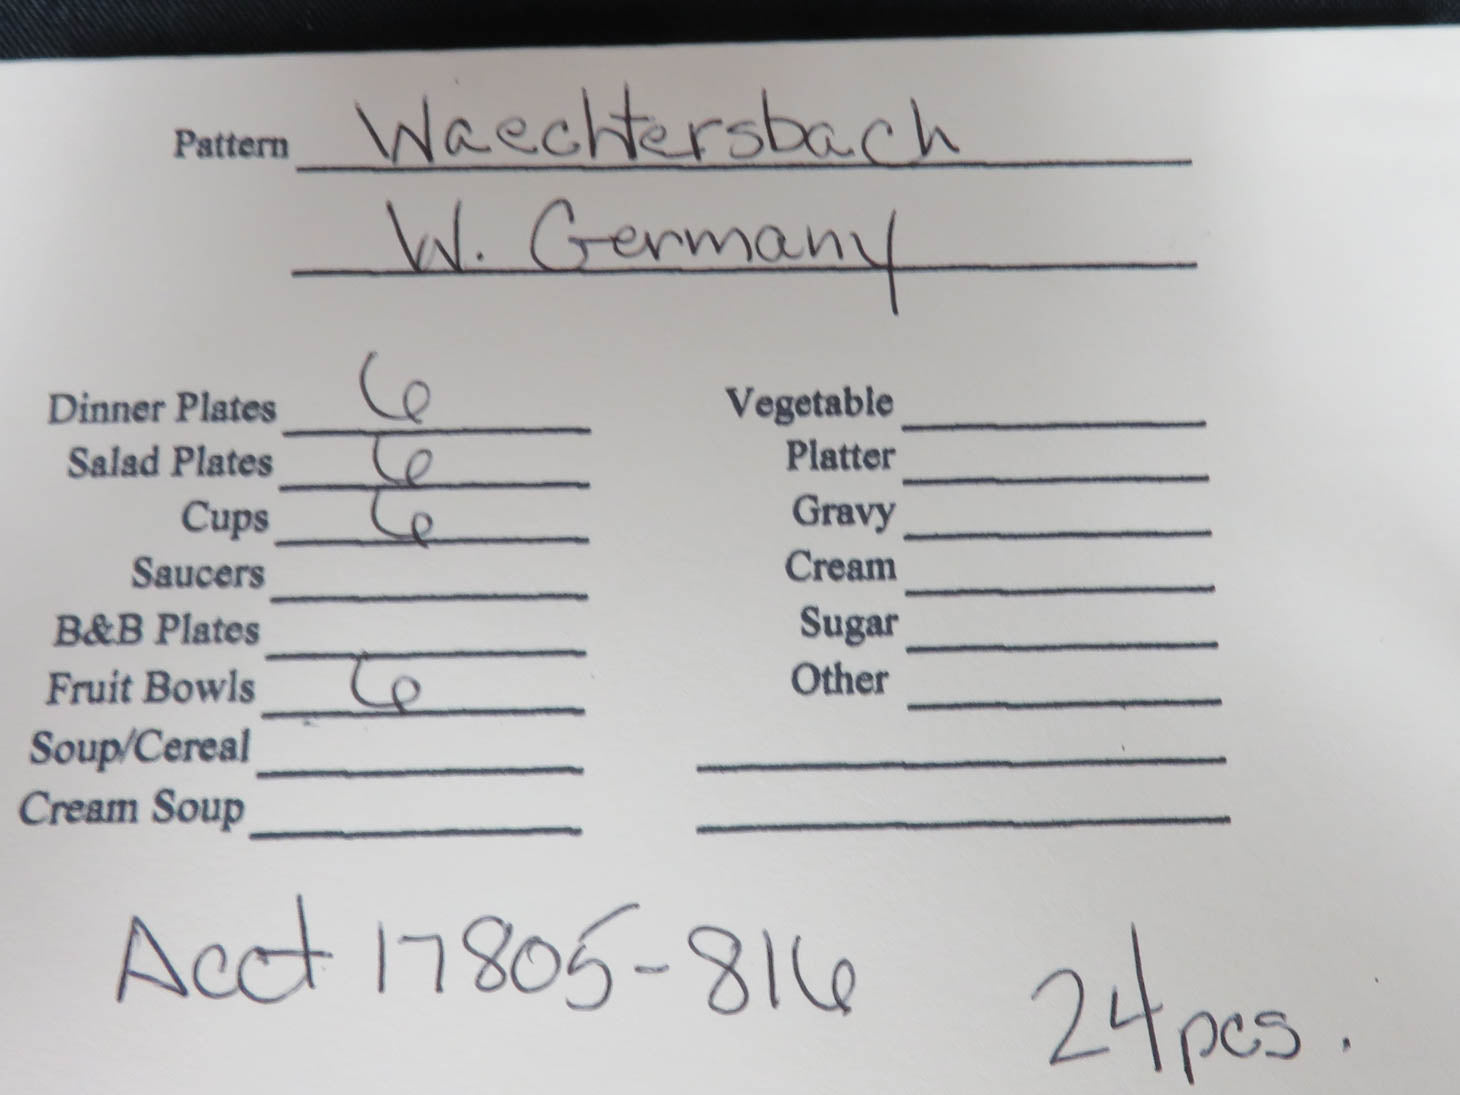 Pattern Waechtersbach
W. Germany
Dinner Plates 6
Salad Plates 6
Cups 6
Saucers
B&B Plates
Fruit Bowls 6
Soup/Cereal
Cream Soup
Vegetable
Platter
Gravy
Cream
Sugar
Other
Acct 17805-816
24pcs.